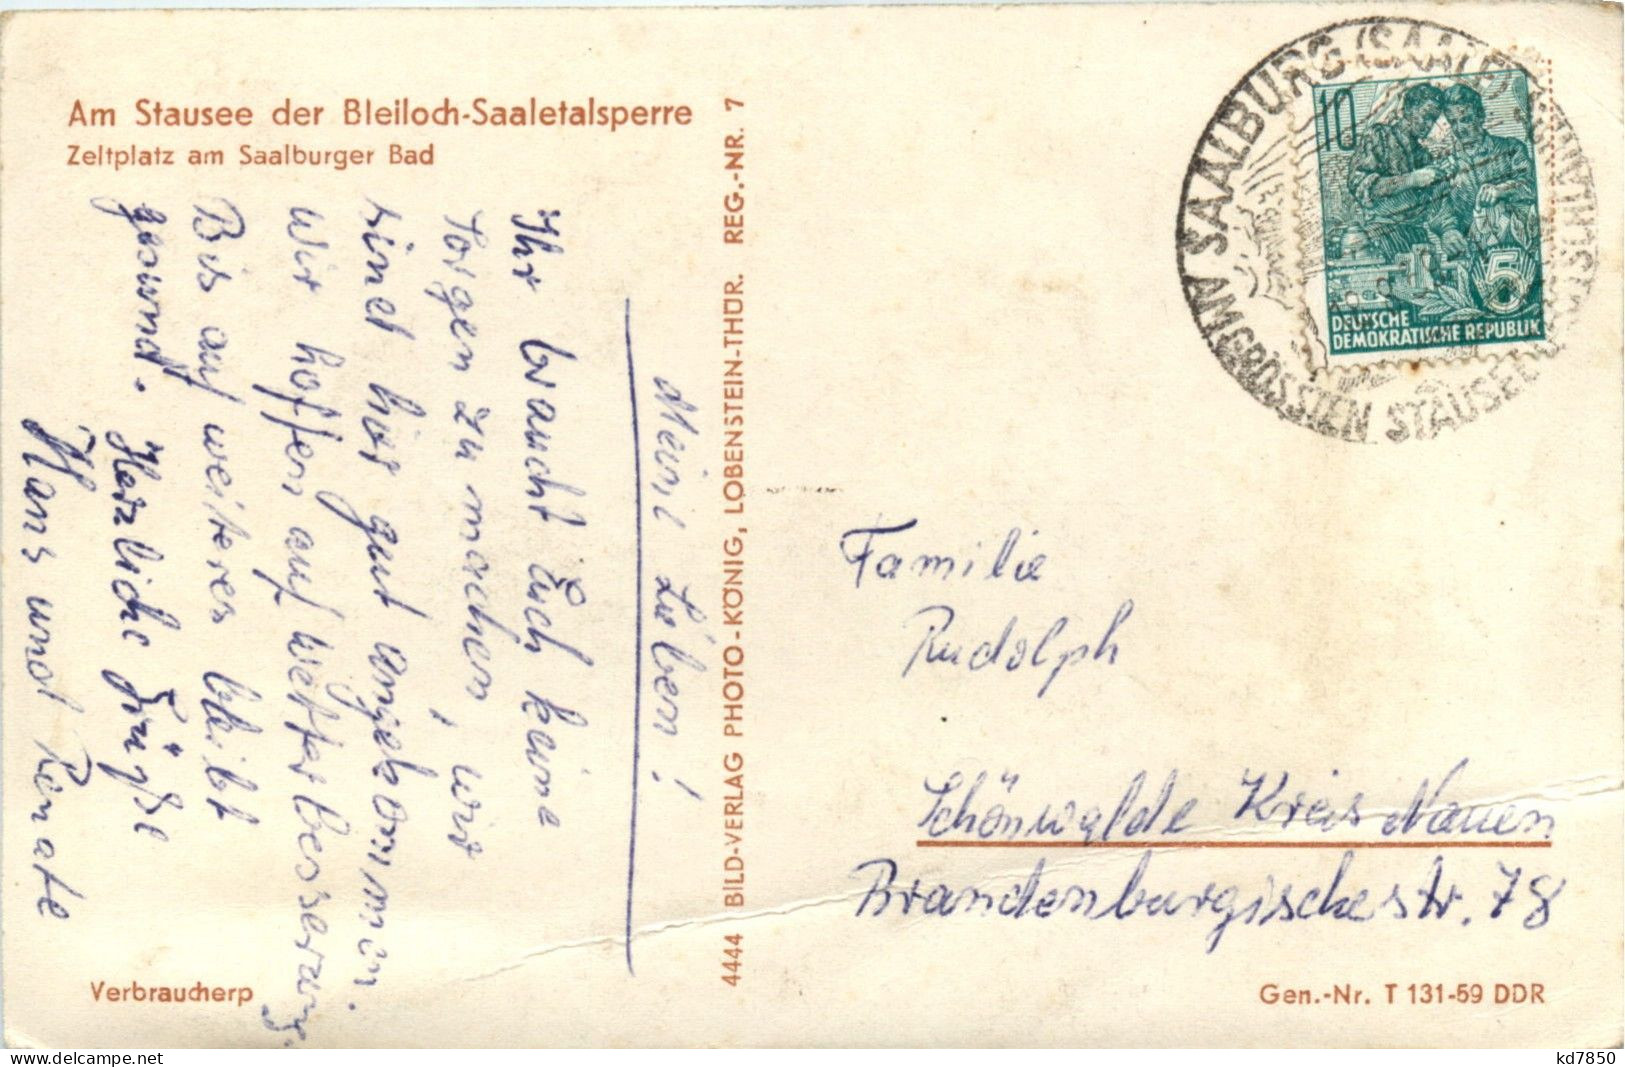 Am Stausee der Bleiloch-Saaletalsperre
Zeltplatz am Saalburger Bad
Meine Lieben!
Ihr braucht Euch keine
Sorgen zu machen, wir
sind hier gut angekommen.
Wir hoffen auf Wetterbesserung.
Bis auf weiteres bleibt
gesund. Herzliche Grüße
Hans und Renate
Verbraucherp
4444 BILD-VERLAG PHOTO-KÖNIG, LOBENSTEIN-THÜR. REG.-NR. 7
SAALBURG (SAALE)
AM GRÖSSTEN STAUSEE
10
5
DEUTSCHE
DEMOKRATISCHE REPUBLIK
Familie
Rudolph
Schönwalde Kreis Nauen
Brandenburgischestr. 78
Gen.-Nr. T 131-59 DDR
kd7850
www.delcampe.net